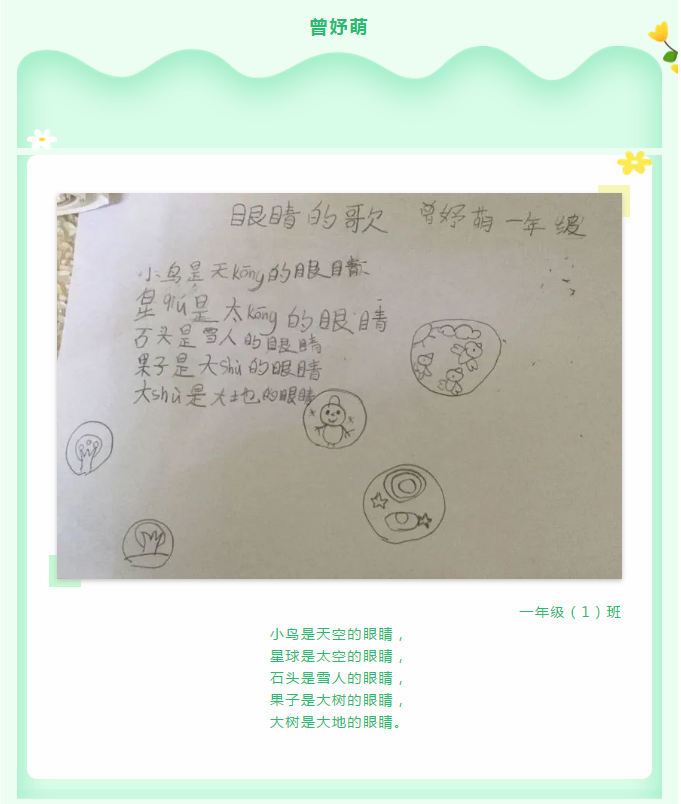 曾妤萌
眼睛的歌 曾妤萌 一年级
小鸟是天kōng的眼睛
星qiú是太kōng的眼睛
石头是雪人的眼睛
果子是大shù的眼睛
大shù是大地的眼睛
一年级（1）班
小鸟是天空的眼睛，
星球是太空的眼睛，
石头是雪人的眼睛，
果子是大树的眼睛，
大树是大地的眼睛。